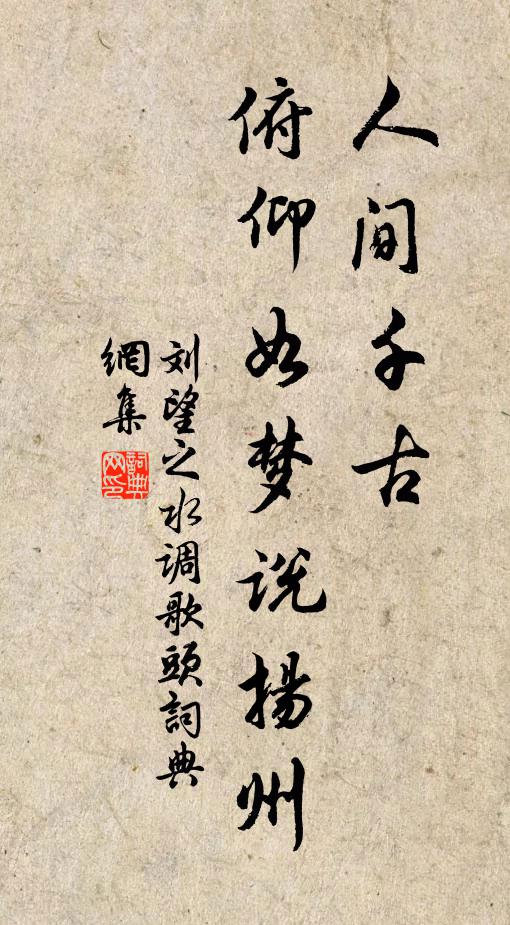 人间千古
俯仰如梦说揚州
刘望之水调歌頭詞典
網集
詞典
网印